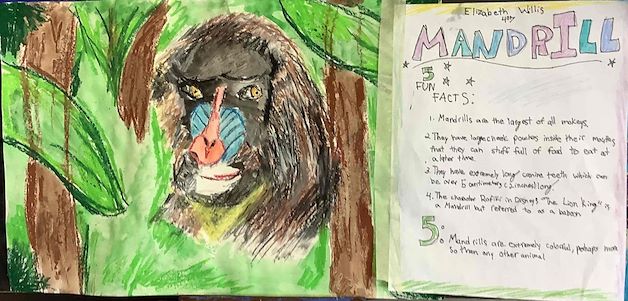 Elizabeth Willis
MANDRILL
5
FUN
FACTS:
1. Mandrills are the largest of all
2. They have large cheek pouches inside their
that they can stuff full of food to eat at
a later time.
3. They have extremely long canine teeth which can
be over 5 centimeters (2 inches) long.
4. The character Rafiki in Disneys "The Lion King" is
a Mandrill but referred to as a baboon
5. Mandrills are extremely colorful, perhaps more
so than any other animal